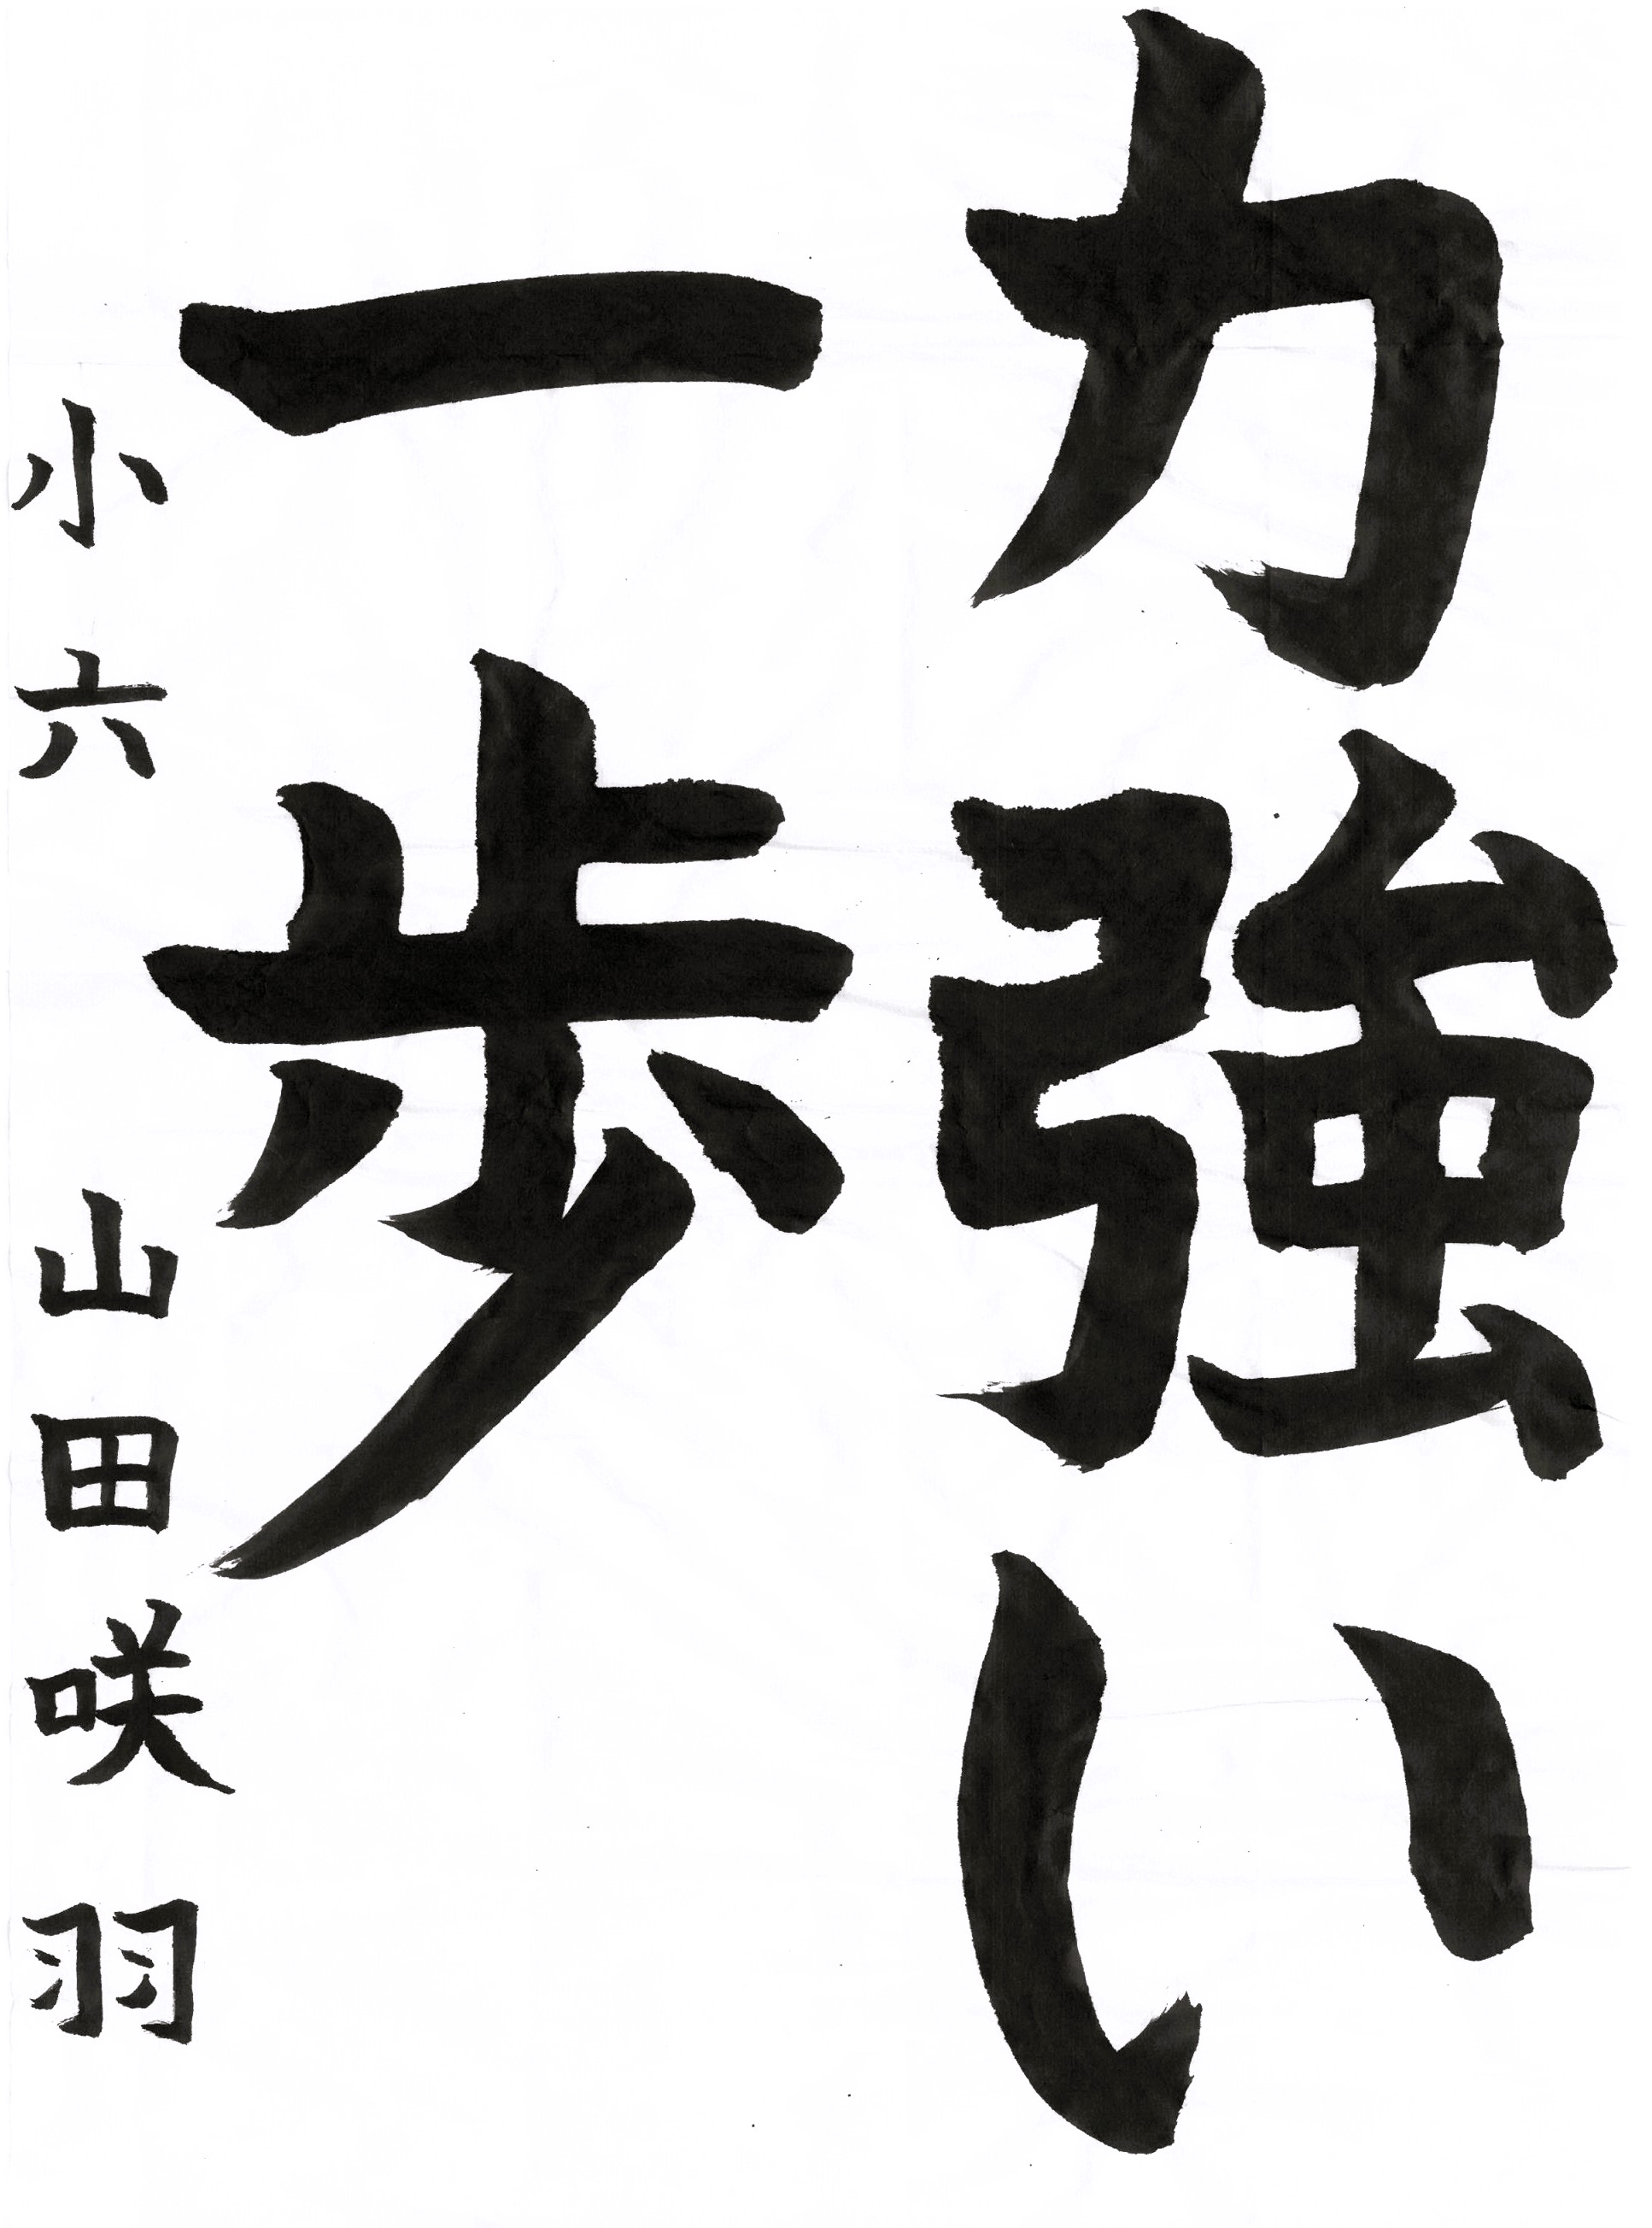 力強い
一歩
小六 山田咲羽